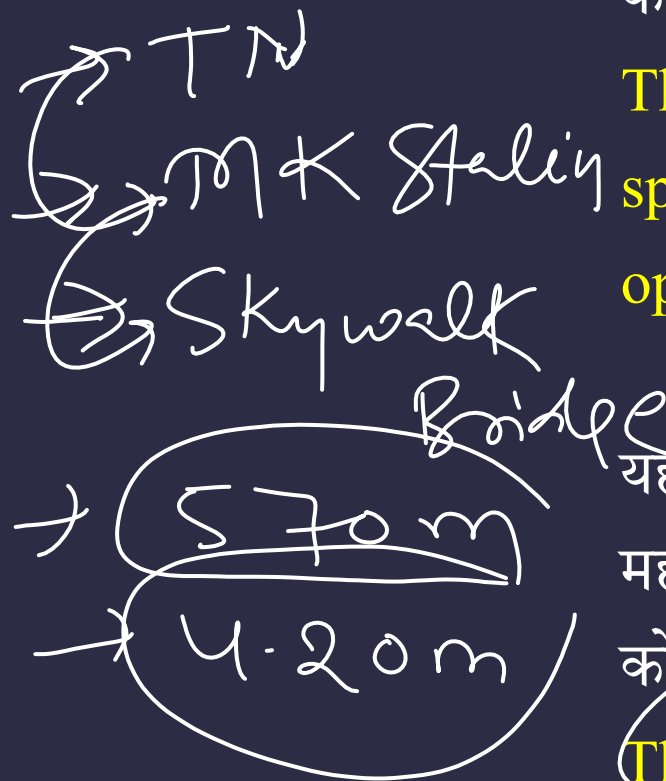 TN
MK Stalin
Skywalk
Bridge
570m
4.20m
Th
sp
op
यह
मह
को
Th